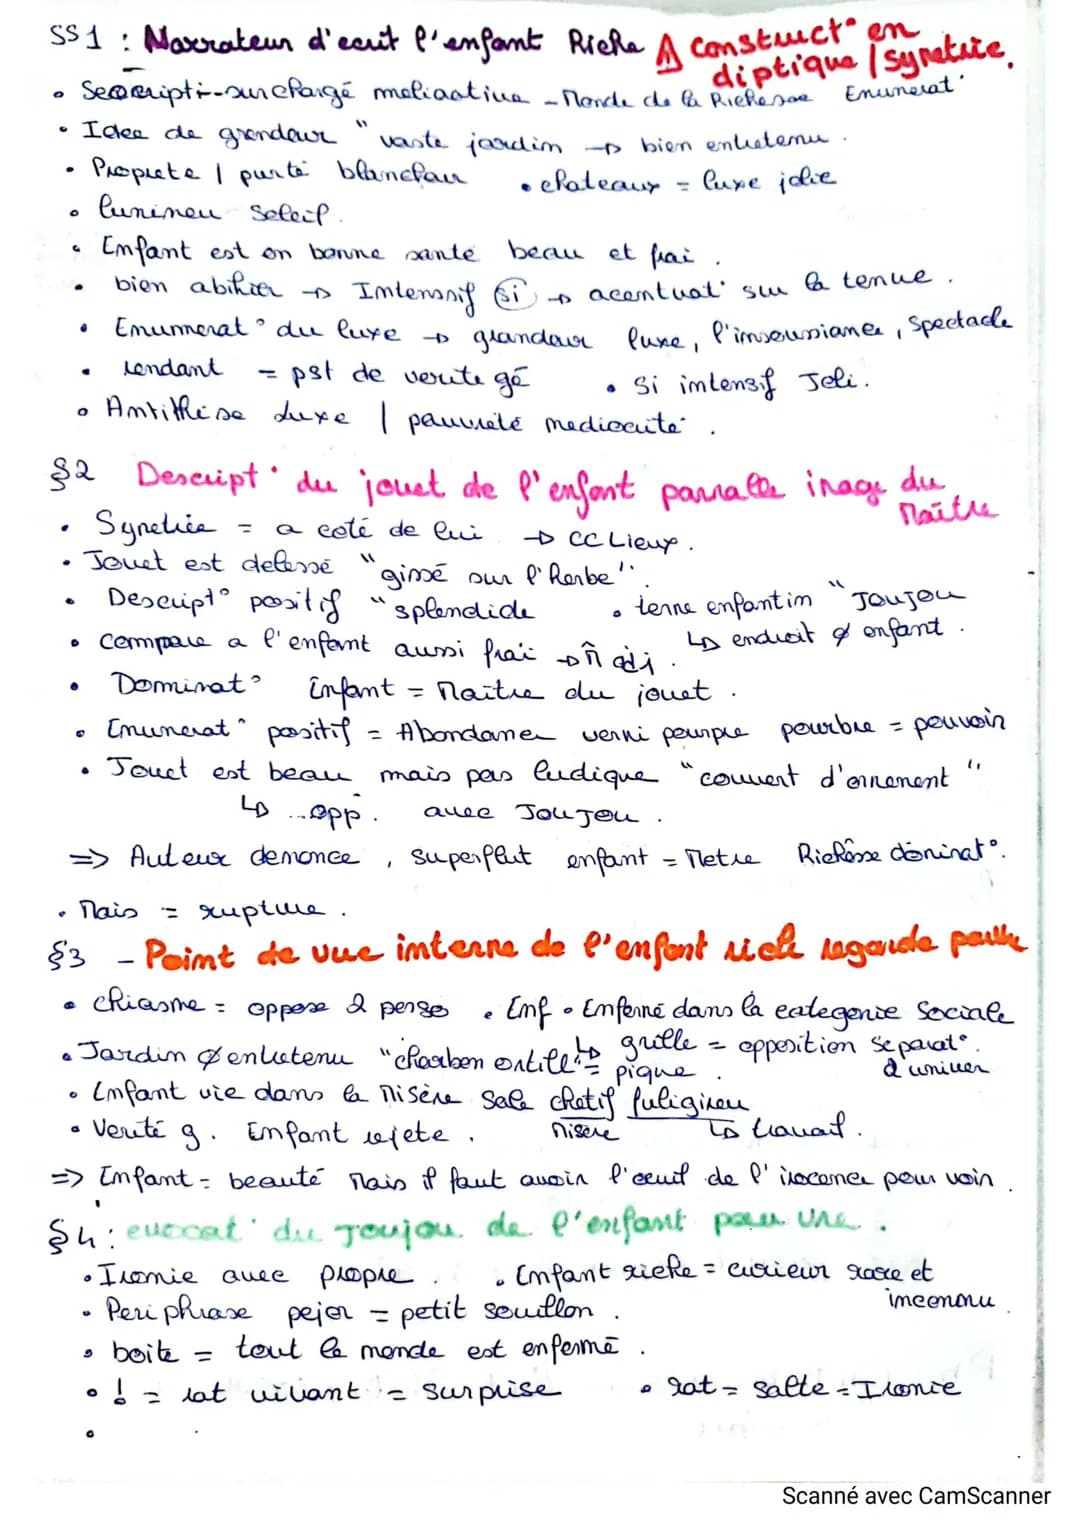 SS1 : Narrateur d'ecrit l'enfant Riche ⚠ Construct° en
diptique / Symetrie.
• Description surchargé meliorative - Monde de la Richesse Enumerat°
• Idee de grandeur "vaste jardin → bien entretenu .
• Propreté / pureté blancheur • chateaux = luxe jolie
• lumineu Soleil.
• Enfant est en bonne santé beau et frai .
• bien abihier → Intenssif (si) → acentuat° sur la tenue .
• Enumerat° du luxe → grandeur luxe, l'insoussiance, Spectacle
• rendant = pst de verite gé • Si intensif Joli.
• Antithèse Luxe / pauvreté mediocrité .
§2 Descript° du jouet de l'enfant parralle image du
Maître
• Symetrie = a coté de lui → CC Lieux .
• Jouet est delessé "gissé sur l'herbe".
• Descript° positif "splendide • terme enfantin "Joujou
• compare a l'enfant aussi frai → m̂ adj . ↳ endroit ø enfant .
• Dominat° Enfant = Maître du jouet .
• Enumerat° positif = Abondance verni pourpre pourpre = pouvoir
• Jouet est beau mais pas ludique "couvert d'ornement"
↳ ...opp. avec Joujou .
=> Auteur denonce , superflut enfant = Metre Richesse dominat°.
• Mais = rupture .
§3 - Point de vue interne de l'enfant rich regarde pauvre
• chiasme = oppose 2 perso • Enf • Enfermé dans la categorie Sociale
• Jardin ø entretenu "chardon ortille" ↳ grille = opposition separat°
= pique . d'univer
• Enfant vie dans la Misère Sale chetif fuligineu
• Verité g. Enfant rejete . misere ↳ travail .
=> Enfant = beauté Mais il faut avoir l'oeuil de l'inocence pour voir .
§4 : evocat° du Joujou de l'enfant pauvre .
• Ironie avec propre . • Enfant riche = curieux rare et
inconnu .
• Periphrase pejor = petit souillon .
• boite = tout le monde est enfermé .
• ! = rat vivant = surprise • rat = salte = Ironie
•
Scanné avec CamScanner